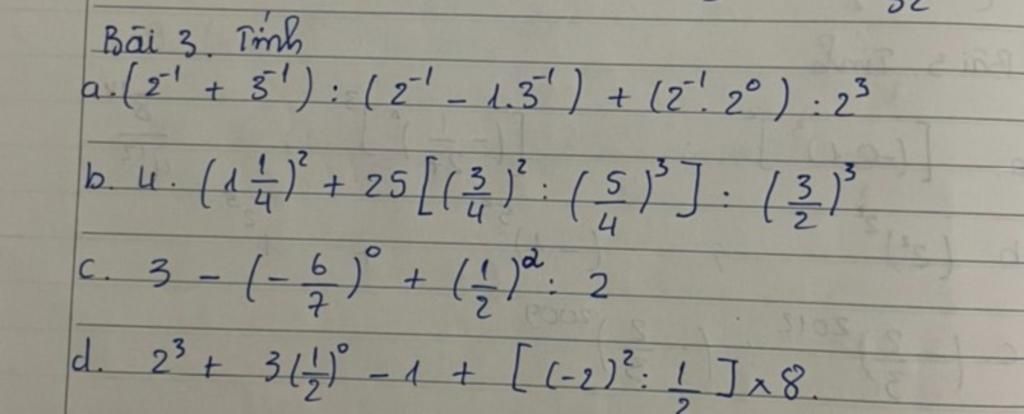 Bài 3. Tính
a. (2⁻¹ + 3⁻¹) : (2⁻¹ − 1.3⁻¹) + (2⁻¹. 2⁰) : 2³
b. 4. (1 1/4)² + 25 [(3/4)² : (5/4)³] : (3/2)³
c. 3 − (−6/7)⁰ + (1/2)² : 2
d. 2³ + 3(1/2)⁰ − 1 + [(-2)² : 1/2] × 8.